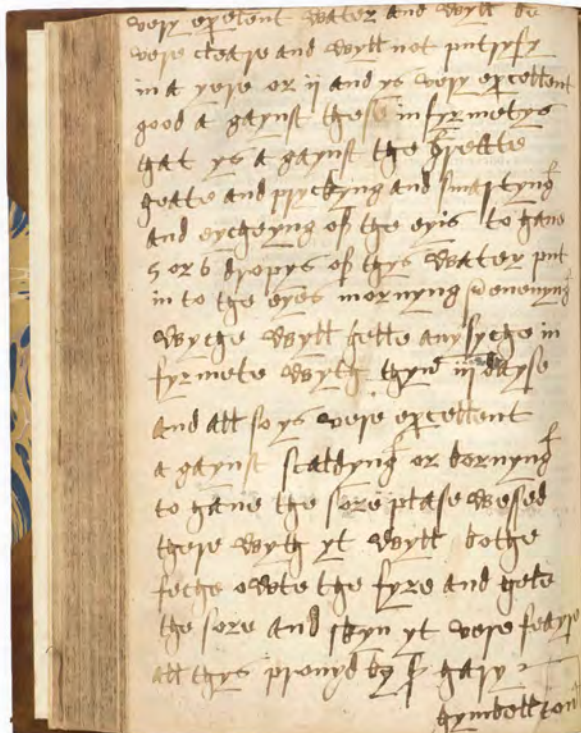 very exelent water and wyll be
vere cleare and wyll not putryfy
in a yere or ij and ys very excellent
good a gaynst these in fyrmetys
that ys a gaynst the greate
heate and pryckyng and smartyng
and eycheyng of the eyis to have
5 or 6 dropys of thys water put
in to the eyes mornyng evenyng
wyche wyll helle any syche in
fyrmete wyth thyn iij dayse
and all so ys vere excellent
a gaynst scaldyng or bornyng
to have the sore plase wesed
there wyth yt wyll bothe
feche owte the fyre and hele
the sore and skyn yt vere feayre
all thys provyd by hary
kymbolton